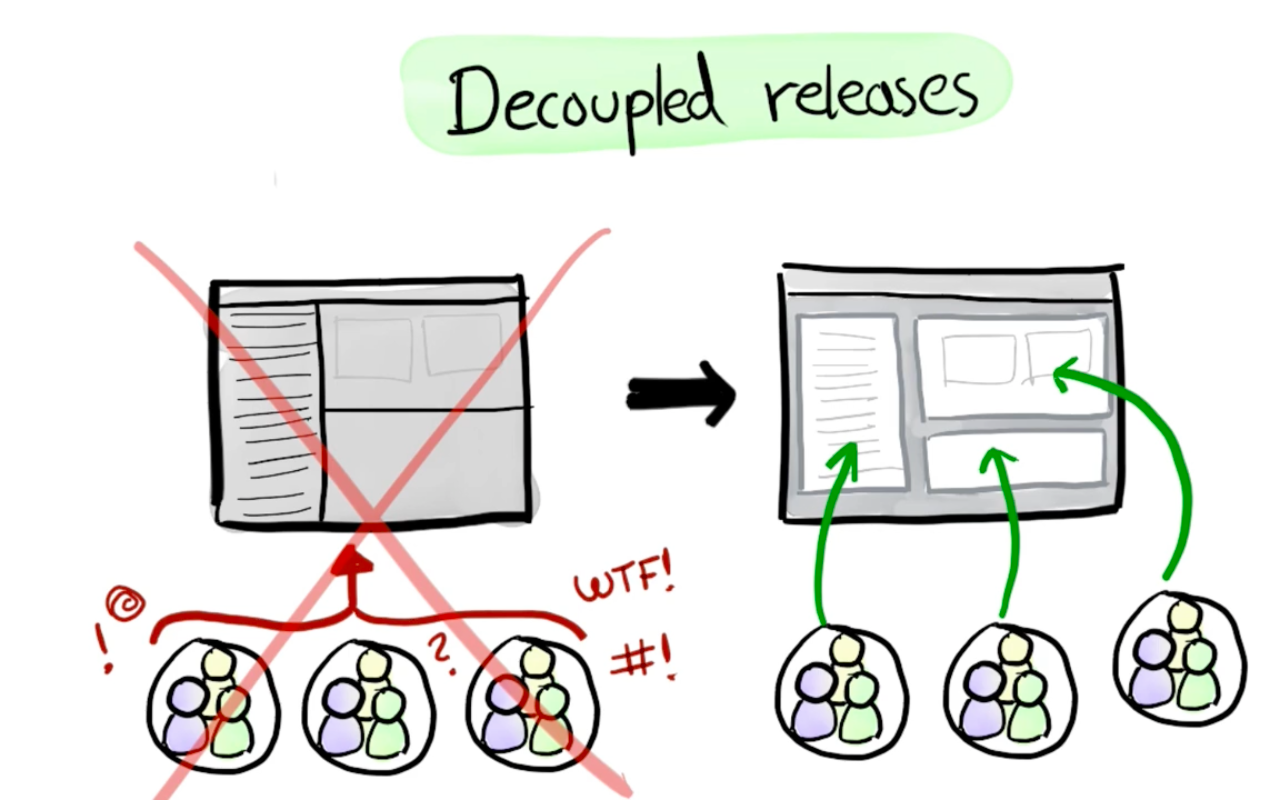 Decoupled releases
WTF!
!
?
#!